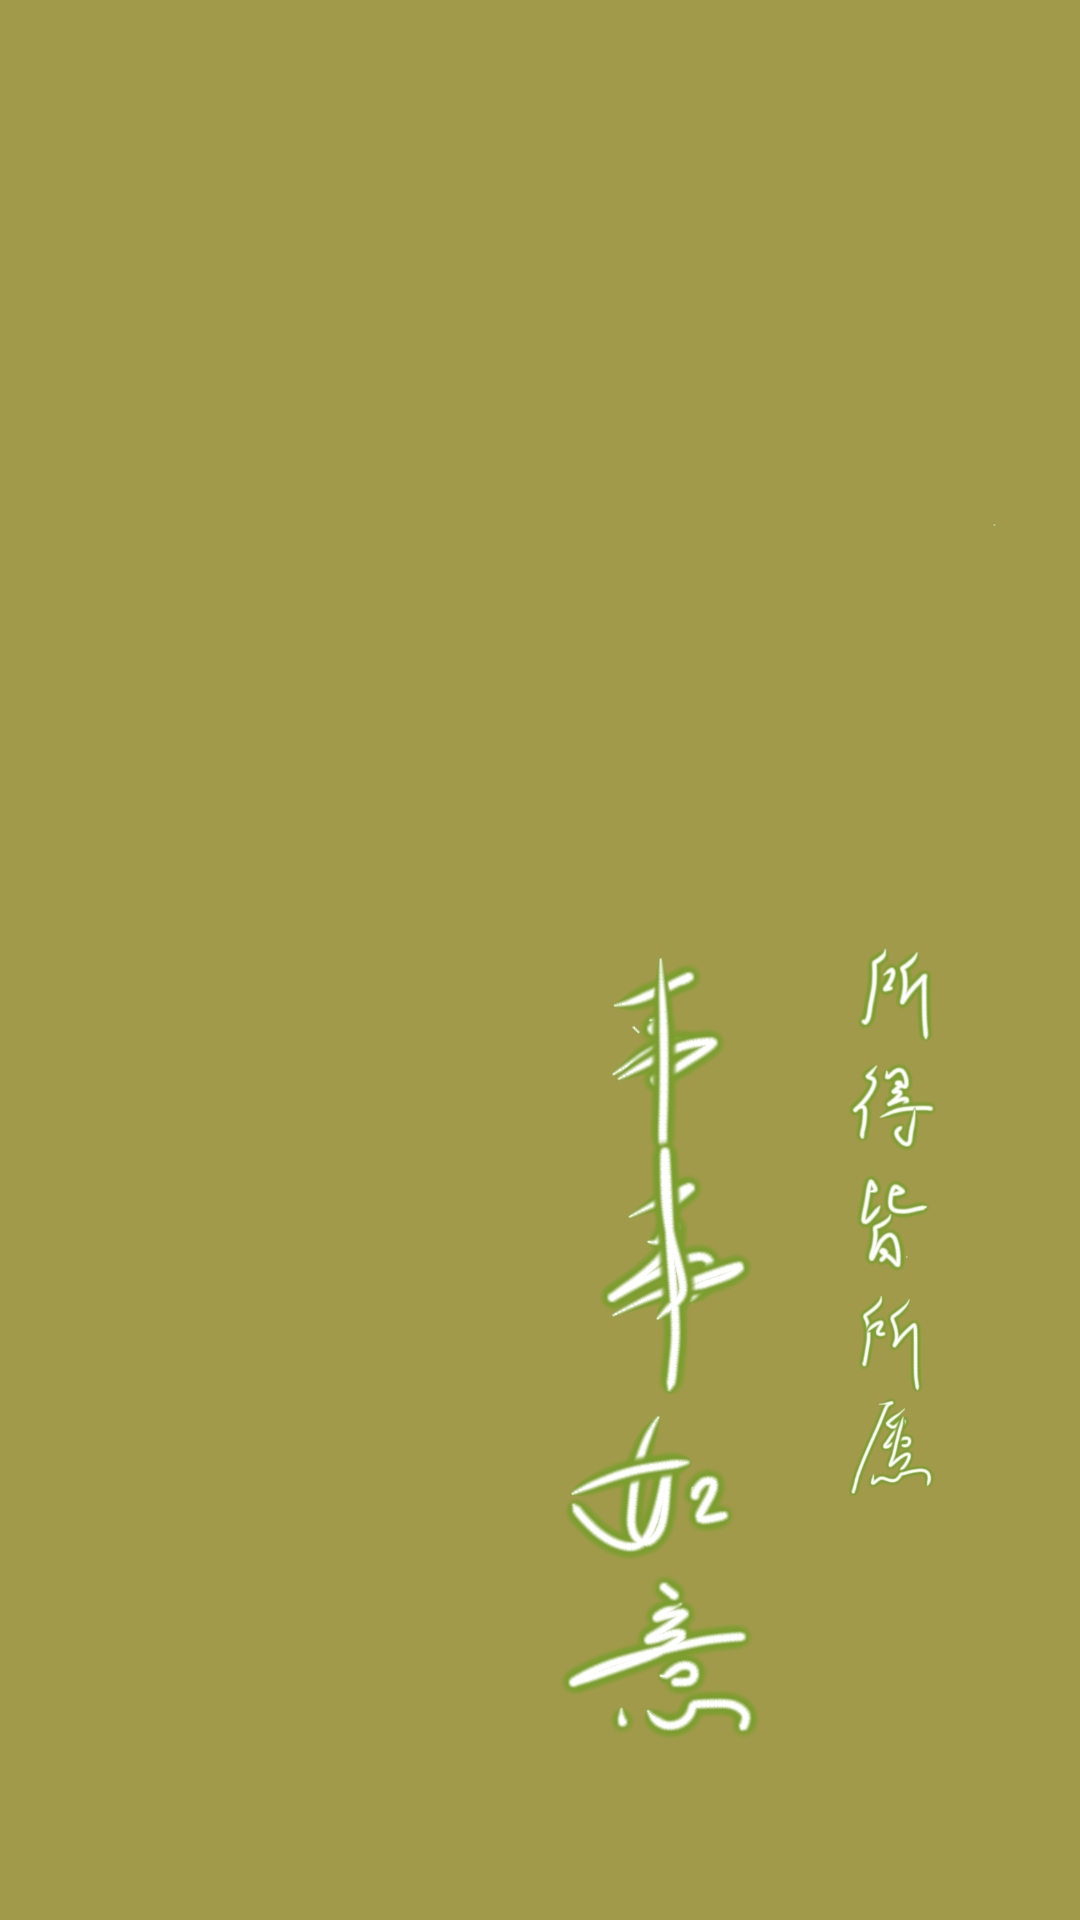 所得皆所愿
事事如意